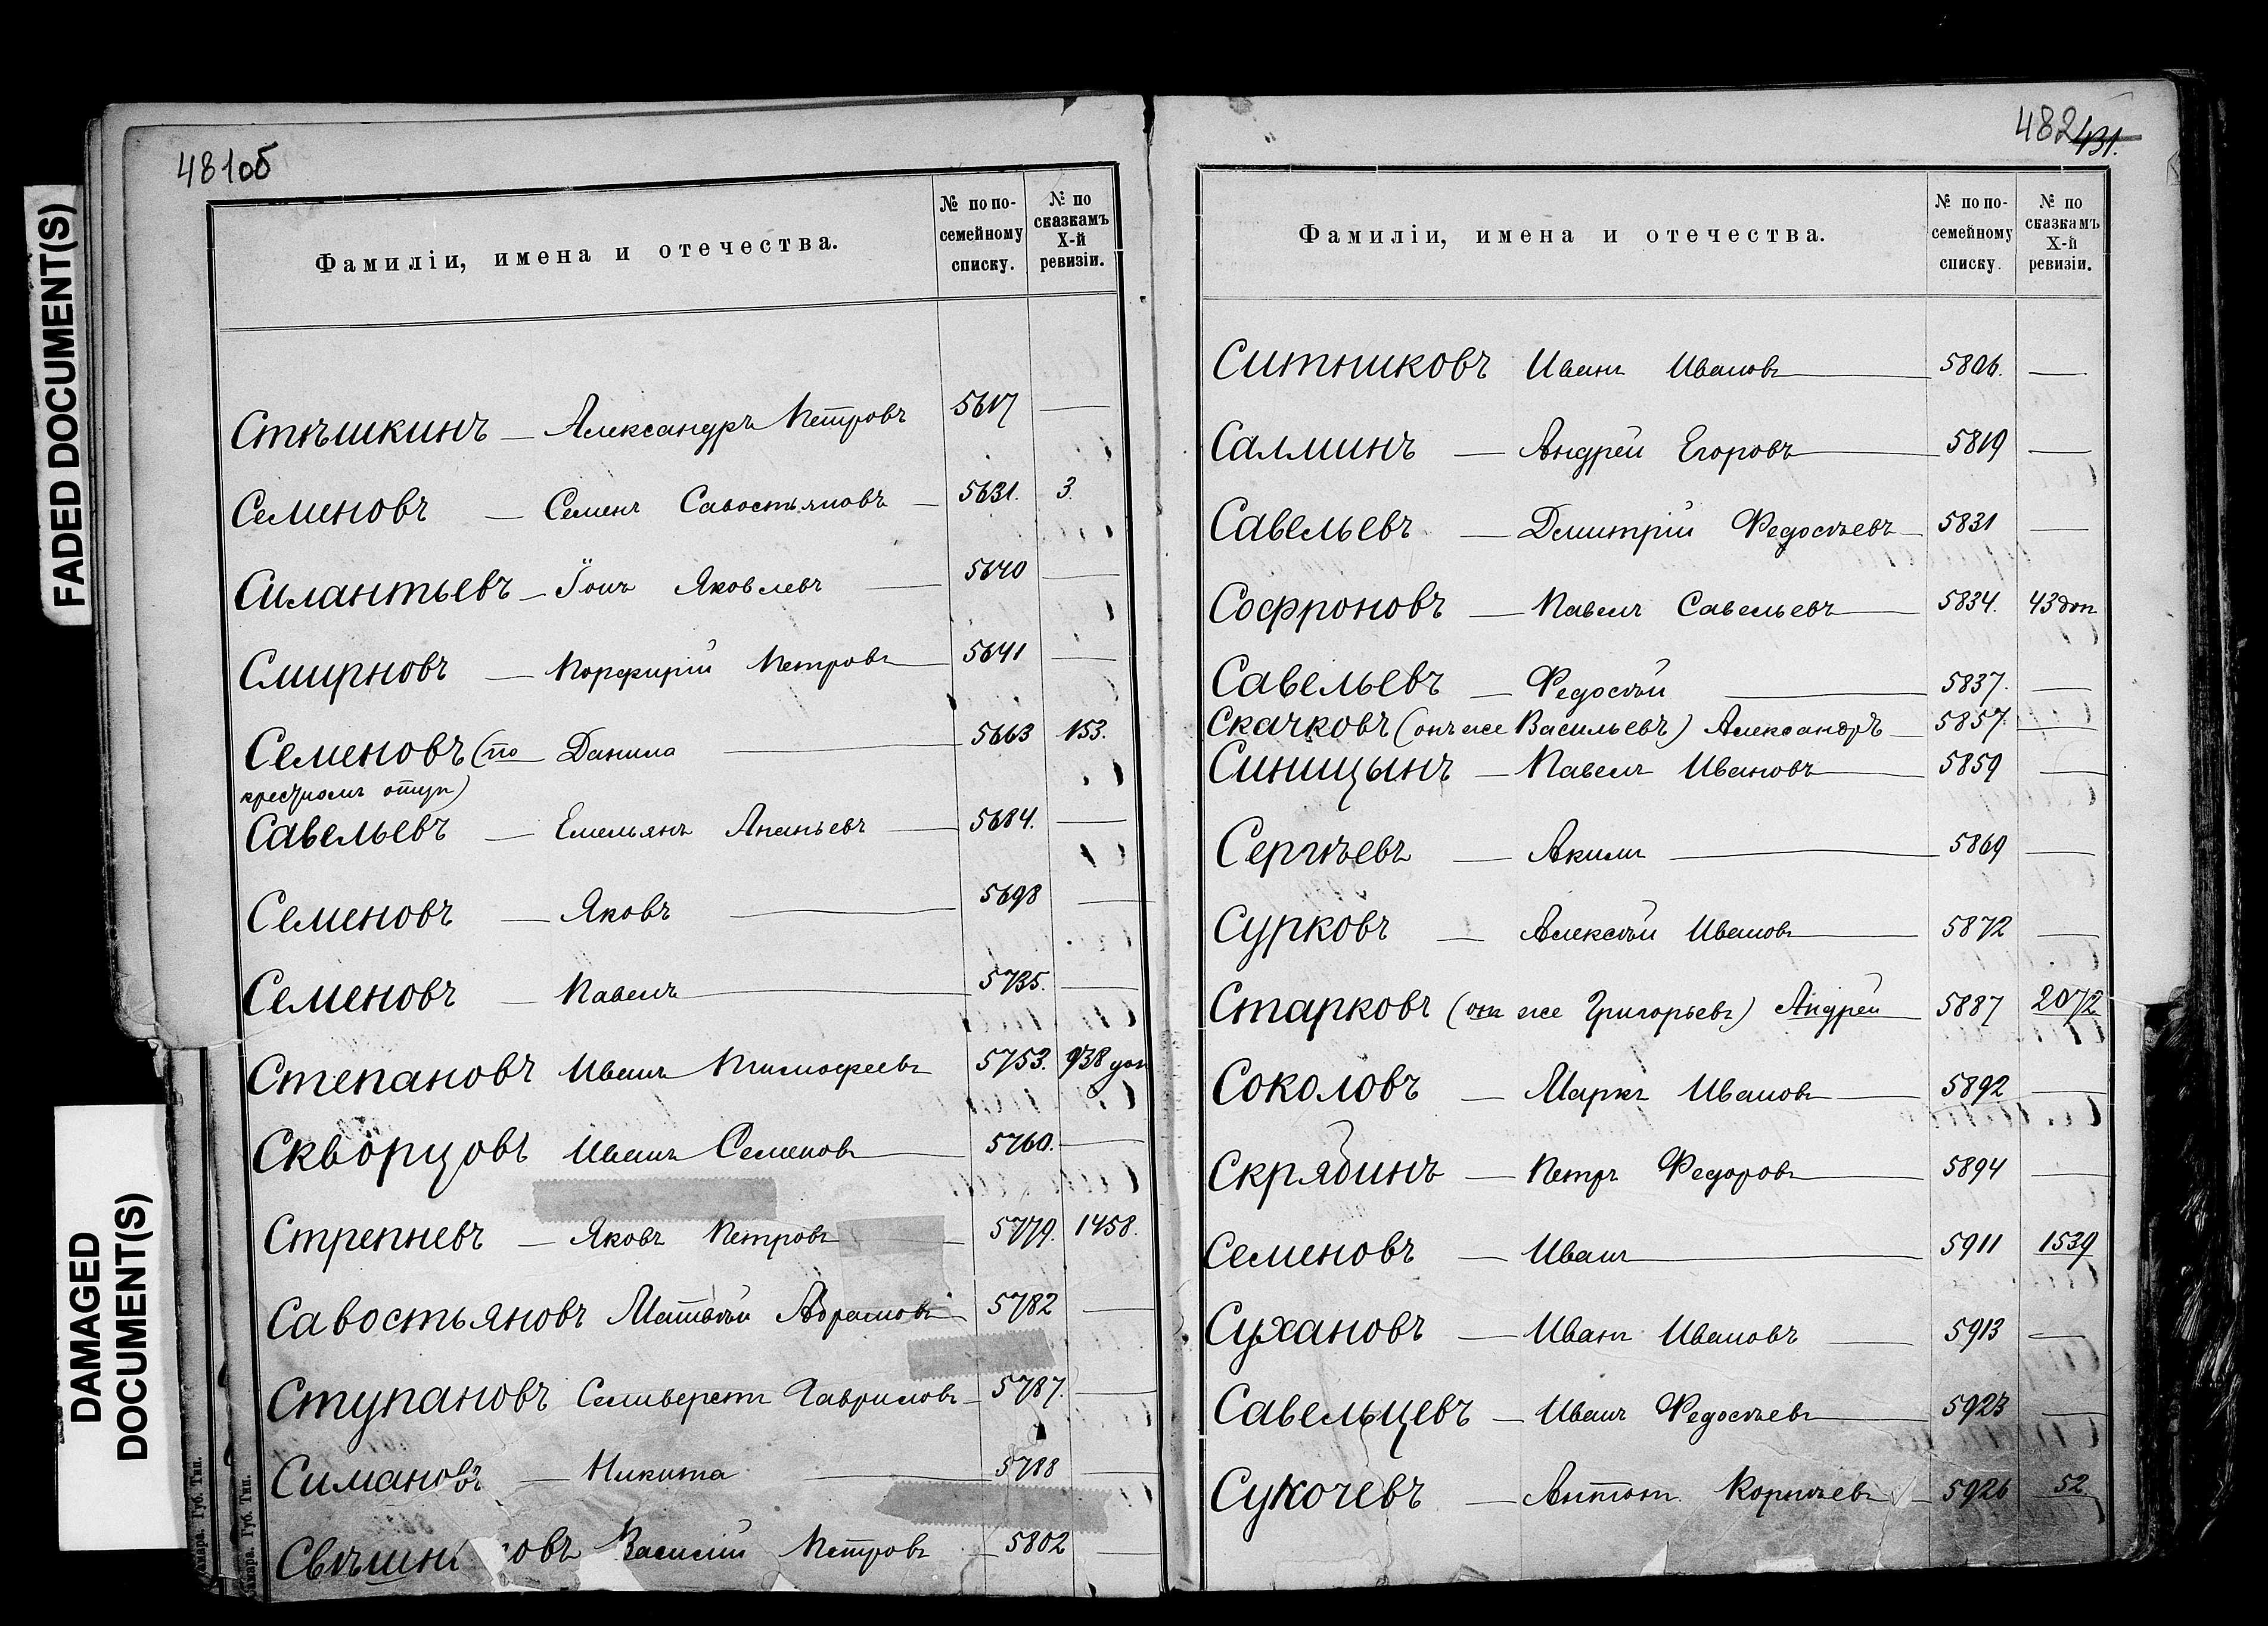 FADED DOCUMENT(S)
DAMAGED
DOCUMENT(S)
481об
Фамиліи, имена и отечества.
№ по по-
семейному
списку.
№ по
сказкамъ
X-й
ревизіи.
Стѣшкинъ — Александръ Петровъ 5617 —
Семеновъ — Семенъ Савостьяновъ — 5631. 3.
Силантьевъ — Іонъ Яковлевъ — 5640 —
Смирновъ — Порфирій Петровъ — 5641 —
Семеновъ (по Данила — 5663 153.
крестному отцу)
Савельевъ — Емельянъ Ананьевъ — 5684. —
Семеновъ — Яковъ — 5698 —
Семеновъ — Павелъ — 5735. —
Степановъ Иванъ Тимофеевъ 5753. 938 доп
Скворцовъ Иванъ Семеновъ — 5760. —
Стрепневъ — Яковъ Петровъ — 5779. 1458.
Савостьяновъ Матвѣй Абрамовъ — 5782 —
Ступановъ Селиверстъ Гавриловъ — 5787. —
Симановъ — Никита — 5788 —
Свѣшн ковъ Василій Петровъ — 5802 —
Самара. Губ. Тип.
Самара. Губ. Тип.
482 431.
Фамиліи, имена и отечества.
№ по по-
семейному
списку.
№ по
сказкамъ
X-й
ревизіи.
Ситниковъ Иванъ Ивановъ — 5806. —
Салминъ — Андрей Егоровъ — 5819 —
Савельевъ — Дмитрій Федосѣевъ — 5831 —
Софроновъ — Павелъ Савельевъ — 5834. 43 доп
Савельевъ — Федосѣй — 5837. —
Скачковъ (онъ же Васильевъ) Александръ — 5857. —
Синицынъ — Павелъ Ивановъ — 5859 —
Сергѣевъ — Акимъ — 5869 —
Сурковъ — Алексѣй Ивановъ — 5872 —
Старковъ (онъ же Григорьевъ) Андрей 5887 2072
Соколовъ — Маркъ Ивановъ — 5892 —
Скрябинъ — Петръ Федоровъ — 5894 —
Семеновъ — Иванъ — 5911 1539
Сухановъ — Иванъ Ивановъ — 5913 —
Савельцевъ — Иванъ Федосѣевъ — 5923 —
Сукочевъ — Антонъ Корнѣевъ — 5926 52.